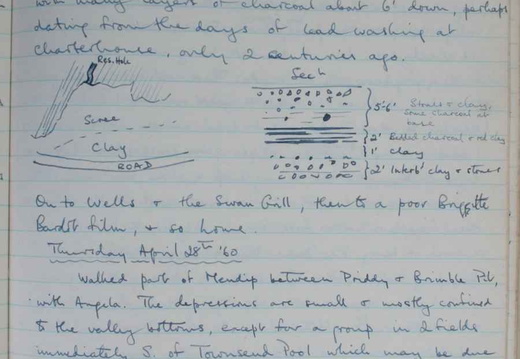 with many layers of charcoal about 6' down, perhaps
dating from the days of lead washing at
Charterhouse, only 2 centuries ago.
Res. Hole
Scree
Clay
ROAD
Sech
5'-6' Stones & clay,
some charcoal at
base
2' Banded charcoal & red clay
1' Clay
2' Interb' clay & stones
On to Wells & the Swan Grill, then to a poor Brigitte
Bardot film, & so home.
Thursday April 28th '60
Walked part of Mendip between Priddy & Brimble Pit,
with Angela. The depressions are small & mostly confined
to the valley bottoms, except for a group in 2 fields
immediately S. of Townsend Pool which may be due